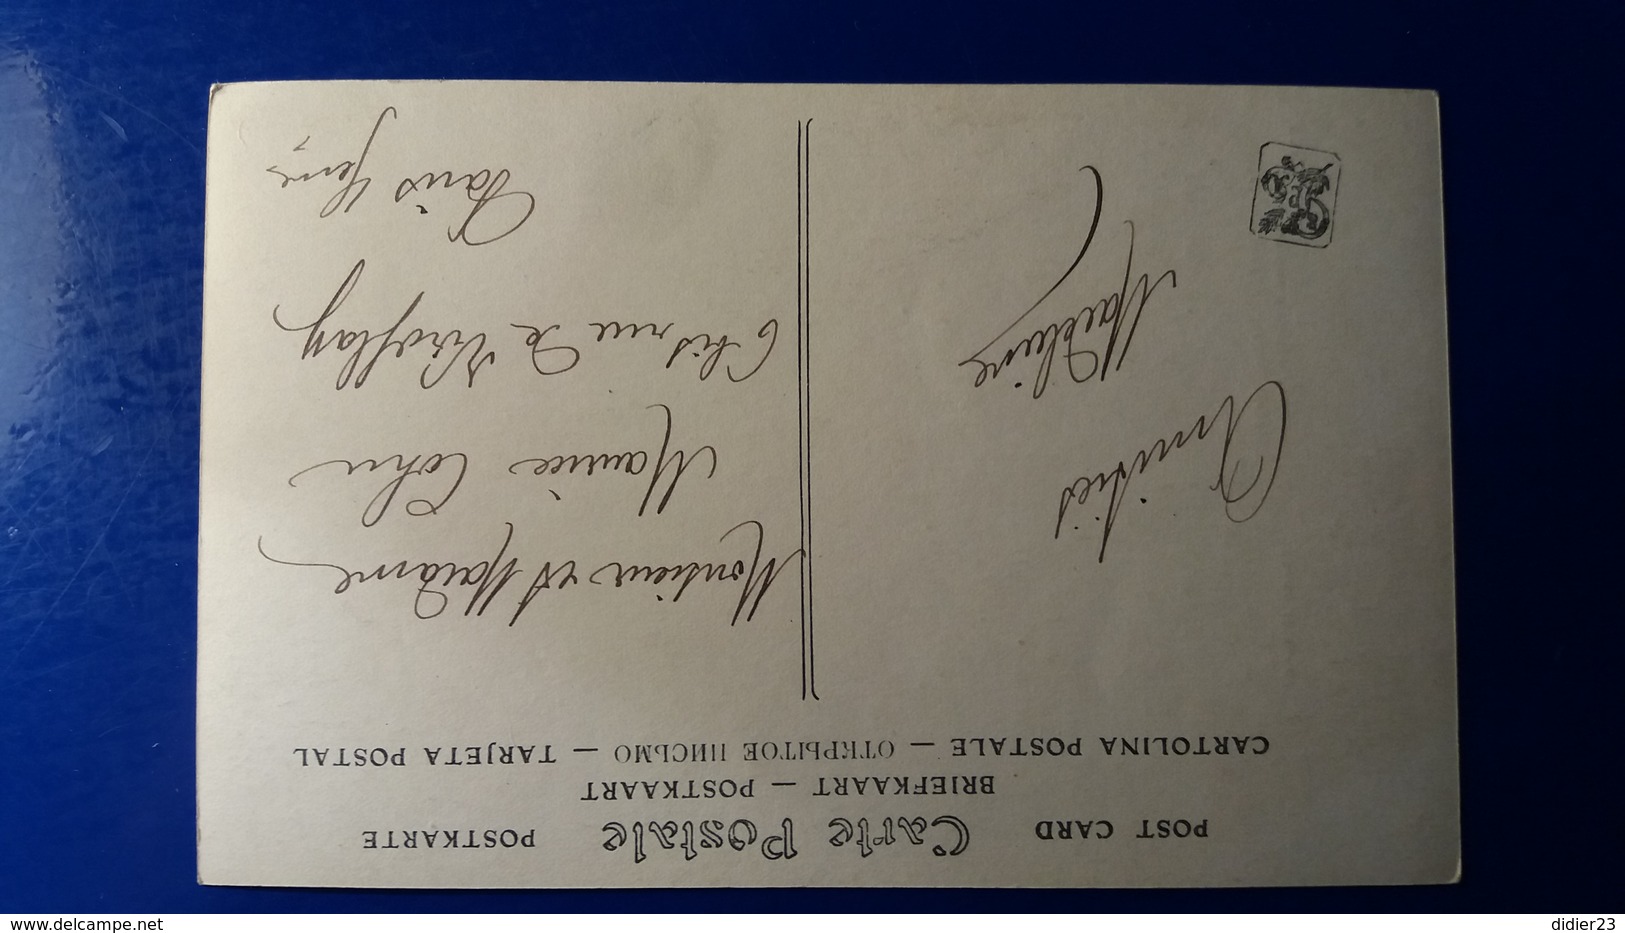 POST CARD Carte Postale POSTKARTE
BRIEFKAART — POSTKAART
CARTOLINA POSTALE — ОТКРЫТОЕ ПИСЬМО — TARJETA POSTAL
Amitiés
Madeleine
Monsieur et Madame
Maurice Cohn
6 bis rue de Viroflay
Paris
delcampe.net
didier23